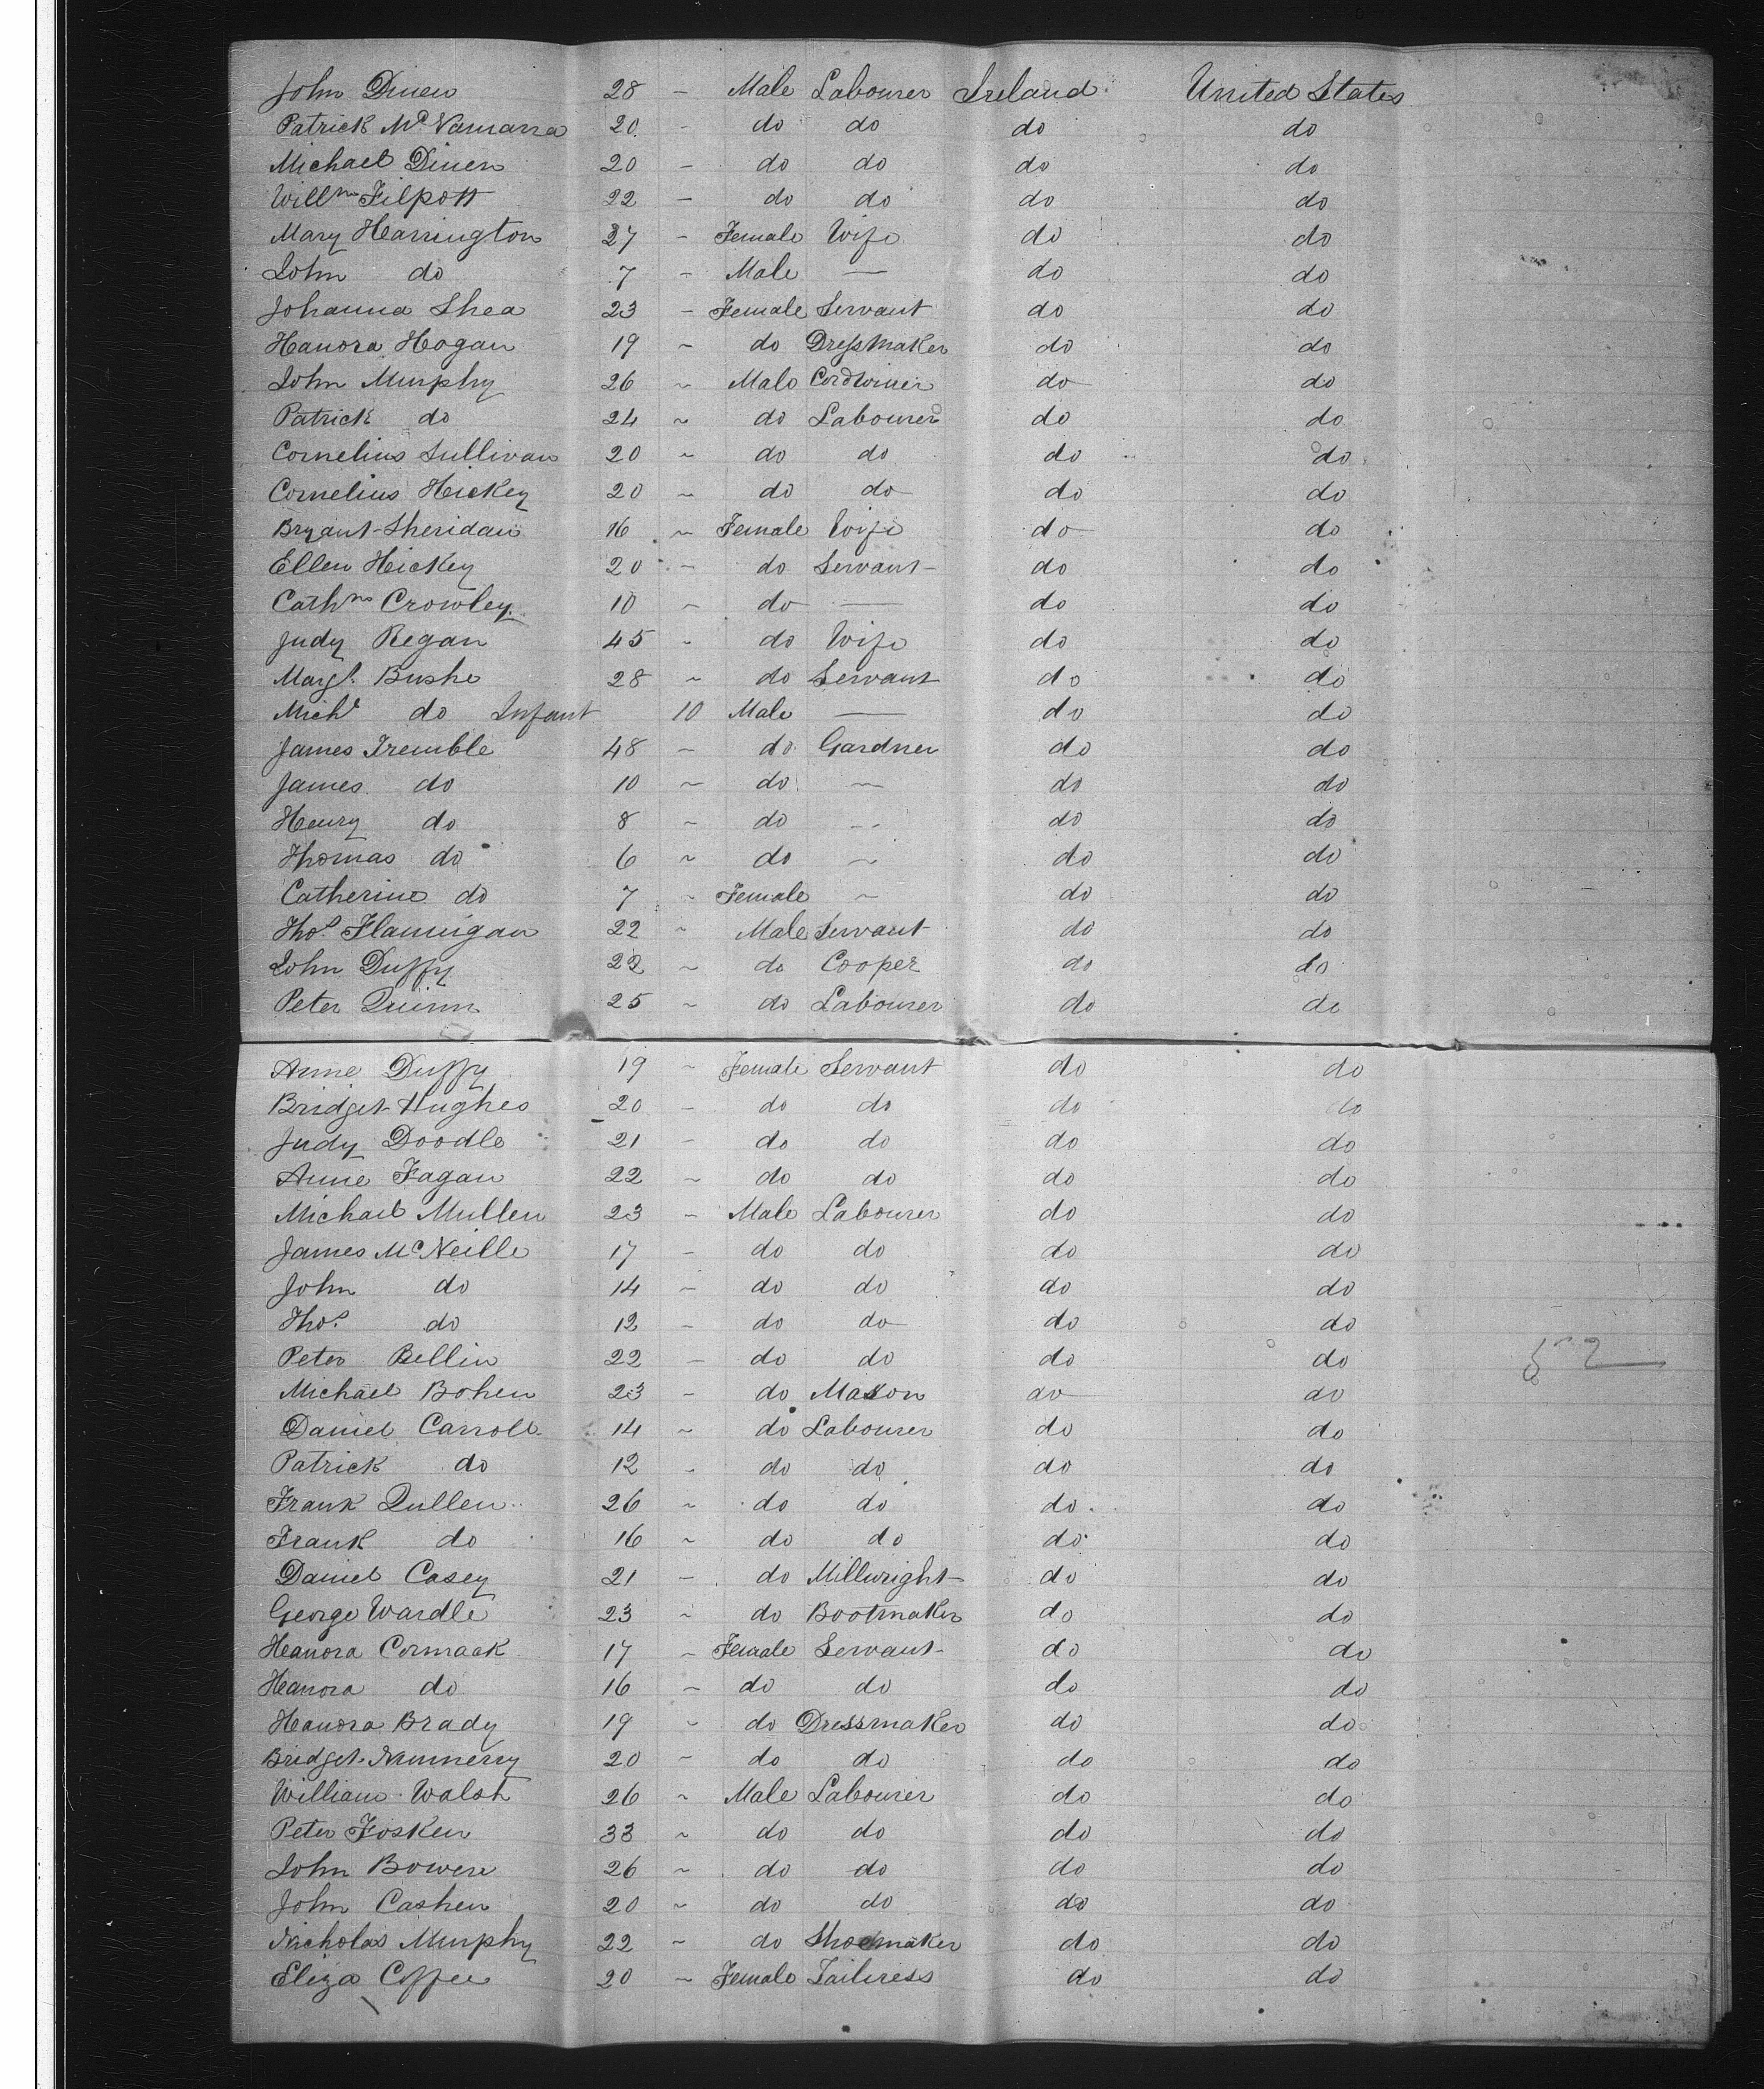 John Dinen 28 - Male Labourer Ireland United States
Patrick McNamarra 20 - do do do do
Michael Dinen 20 - do do do do
Willm Filpott 22 - do do do do
Mary Harrington 27 - Female Wife do do
John do 7 - Male — do do
Johanna Shea 23 - Female Servant do do
Hanora Hogan 19 ~ do Dressmaker do do
John Murphy 26 ~ Male Cordwiner do do
Patrick do 24 ~ do Labourer do do
Cornelius Sullivan 20 ~ do do do do
Cornelius Hickey 20 ~ do do do do
Bryant Sheridan 16 ~ Female Wife do do
Ellen Hickey 20 - do Servant do do
Cathne Crowley 10 ~ do — do do
Judy Regan 45 ~ do Wife do do
Margt. Bushe 28 ~ do Servant do do
Michl do Infant 10 Male — do do
James Tremble 48 ~ do Gardner do do
James do 10 ~ do ~ do do
Henry do 8 ~ do -- do do
Thomas do 6 ~ do ~ do do
Catherine do 7 ~ Female ~ do do
Thos. Flannigan 22 ~ Male Servant do do
John Duffy 22 ~ do Cooper do do
Peter Quinn 25 ~ do Labourer do do
Anne Duffy 19 ~ Female Servant do do
Bridget Hughes 20 - do do do do
Judy Doodle 21 - do do do do
Anne Fagan 22 ~ do do do do
Michael Mullen 23 - Male Labourer do do
James McNeille 17 - do do do do
John do 14 - do do do do
Thos. do 12 - do do do do
Peter Bellin 22 - do do do do
Michael Bohen 23 - do Mason do do
Daniel Carroll 14 ~ do Labourer do do
Patrick do 12 - do do do do
Frank Qullen 26 ~ do do do do
Frank do 16 ~ do do do do
Daniel Casey 21 - do Millwright do do
George Wardle 23 ~ do Bootmaker do do
Hanora Cormack 17 ~ Female Servant do do
Hanora do 16 ~ do do do do
Hanora Brady 19 ~ do Dressmaker do do
Bridget Nunnery 20 ~ do do do do
William Walsh 26 ~ Male Labourer do do
Peter Fosken 33 ~ do do do do
John Bowen 26 ~ do do do do
John Cashen 20 ~ do do do do
Nicholas Murphy 22 ~ do Shoemaker do do
Eliza Coffee 20 ~ Female Tailoress do do